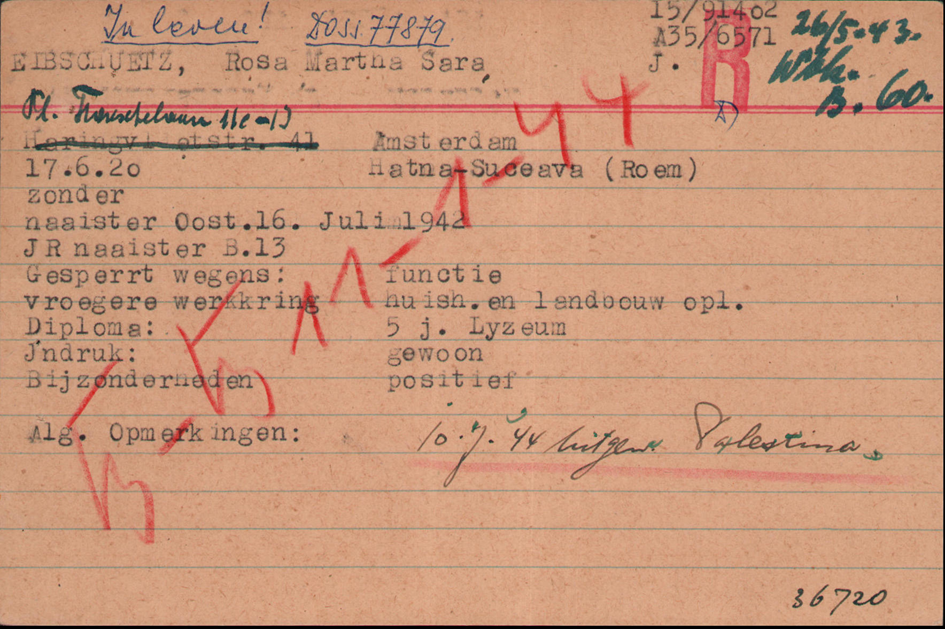 In leven! Doss 77879
15/91402
A35/6571
J.
R
26/5-43.
Wbk.
B. 60.
EIBSCHUETZ, Rosa Martha Sara
Pl.
Haringvlietstr. 41 Amsterdam
17.6.20 Hatna-Suceava (Roem)
zonder
naaister Oost.16. Juli 1942
JR naaister B.13
Gesperrt wegens: functie
vroegere werkkring huish.en landbouw opl.
Diploma: 5 j. Lyzeum
Jndruk: gewoon
Bijzonderheden positief
B-B 11-1-44
Alg. Opmerkingen: 10.7.44 uitgew. Palestina.
36720